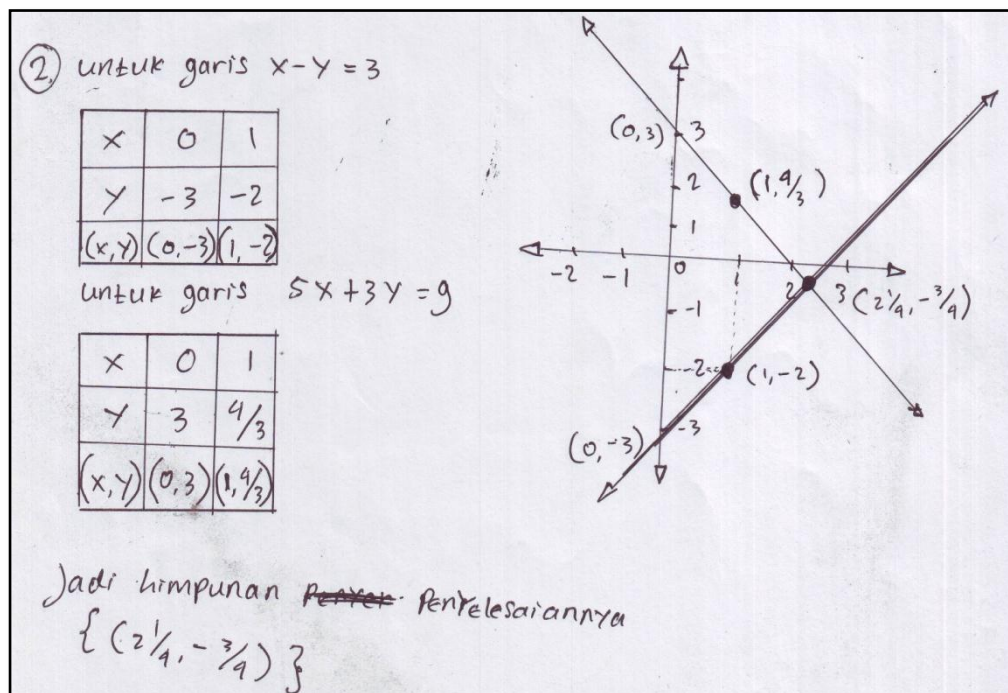 2. untuk garis x - y = 3
x 0 1
y -3 -2
(x,y) (0,-3) (1,-2)
untuk garis 5x + 3y = 9
x 0 1
y 3 4/3
(x,y) (0,3) (1,4/3)
Jadi himpunan Penyelesaiannya
{ (2 1/4, -3/4) }
3
(0,3)
2
(1,4/3)
1
-2 -1 0 1 2 3
(2 1/4, -3/4)
-1
-2
(1,-2)
-3
(0,-3)